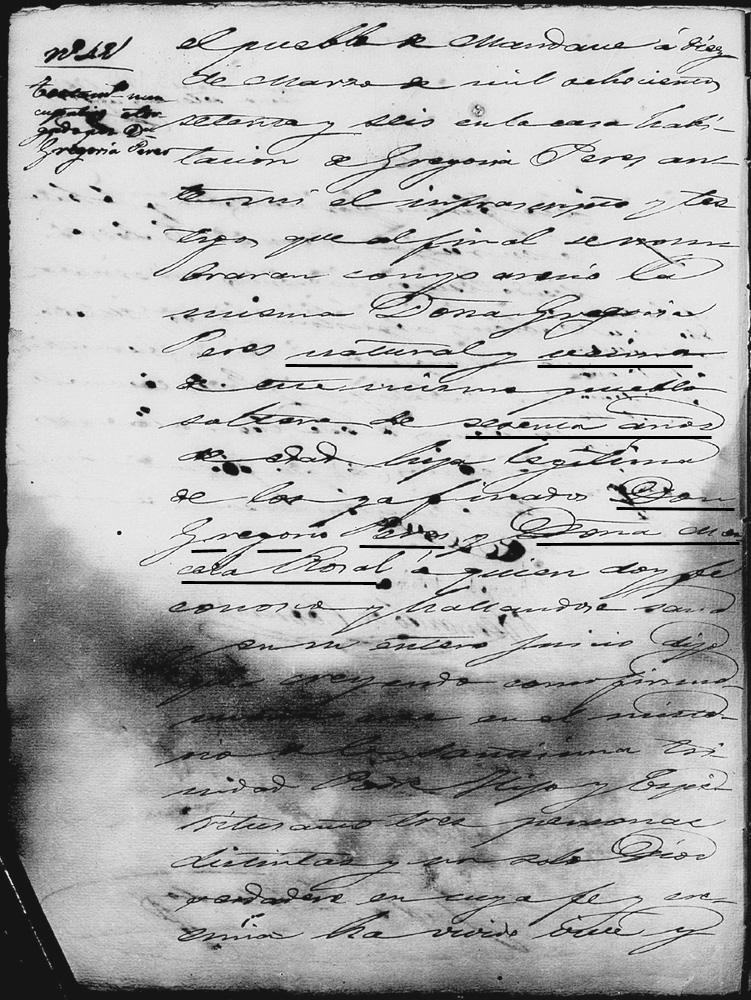 Nº 48
Testamto nun
cupativo otor
gado por Da
Gregoria Peres
el pueblo de Mandaue á diez
de Marzo de mil ochocientos
setenta y seis en la casa habi-
tacion de Gregoria Peres an-
te mi el infrascripto y tes
tigos que al final se nom-
braran comparecio la
misma Dona Gregoria
Peres natural y vecina
de este mismo pueblo
soltera de sesenta años
de edad hija legitima
de los ya finados Don
Gregorio Peres y Doña Mar
cela Rosal á quien doy fe
conosco y hallandose sana
y en su entero juicio dijo
que creyendo como firme-
mente cree en el miste-
rio de la Santisima Tri
nidad Padre Hijo y Espi-
ritu Santo tres personas
distintas y un solo Dios
verdadero en cuya fe y cre-
encia ha vivido vive y